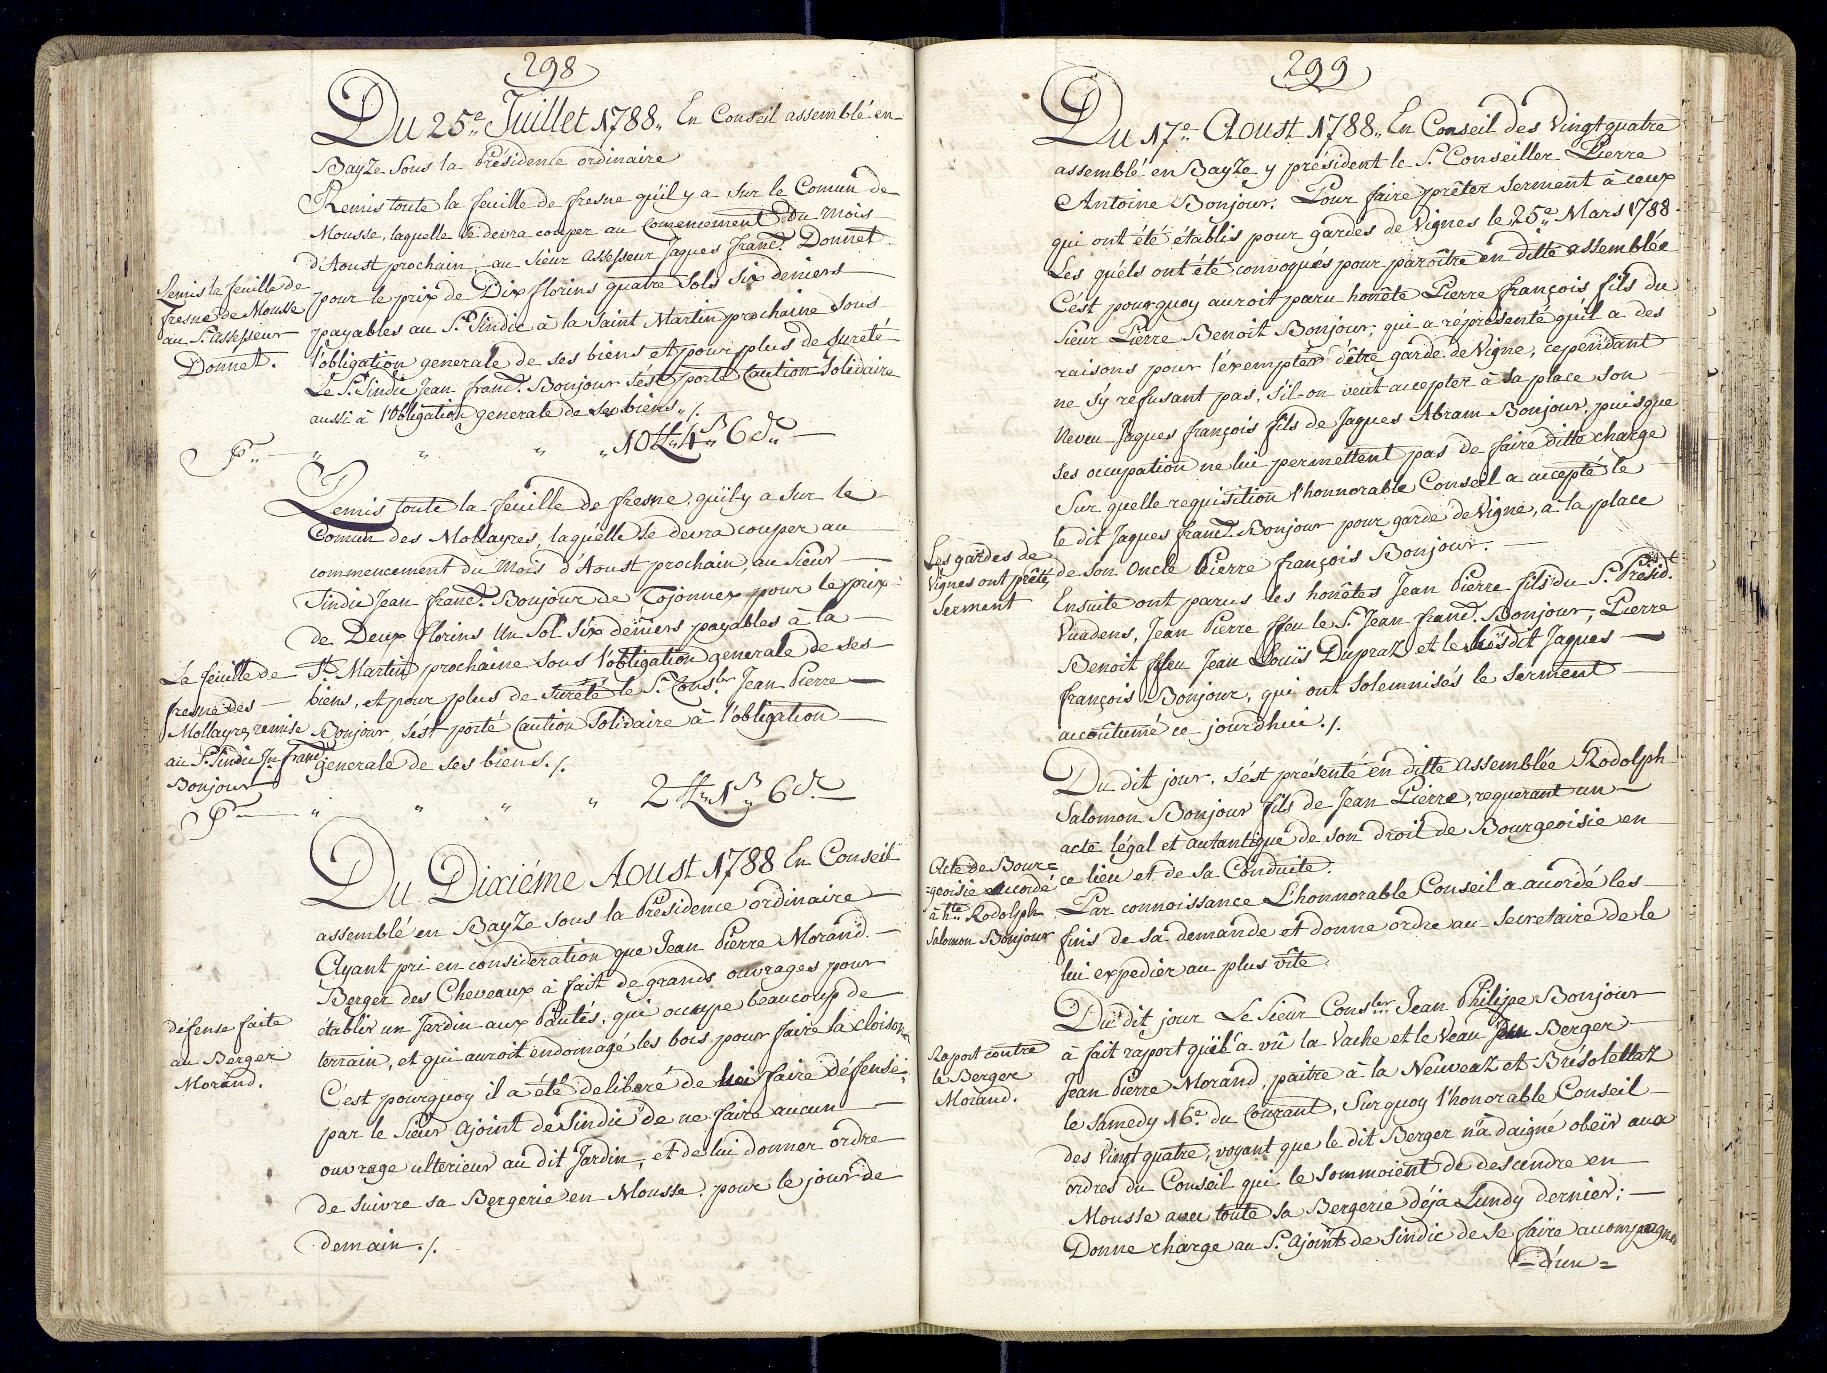 298
Du 25.e Juillet 1788.. En Conseil assemblé en
Bayze sous la Présidence ordinaire
Remis toute la feuille de fresne qu'il y a sur le Comun de
Mousse, laquelle se devra couper au Comencement Du mois
d'Aoust prochain, au Sieur assesseur Jaques franç.s Donnet
pour le prix de Dix florins quatre Sols six deniers
payables au S.r Sindic à la Saint Martin prochaine sous
l'obligation generale de ses biens et pour plus de sureté
Le S.r Sindic Jean franç.s Bonjour s'ést porté Caution Solidaire
aussi à l'Obligation generale de ses biens ./.
Remis la feuille de
fresne de Mousse
au S.r assesseur
Donnet.
P.r — " " " " 10 ff 4 ß 6 d.rs —
Remis toute la feuille de fresne, qu'il y a sur le
Comun des Mollayres, laquélle se devra couper au
commencement du Mois d'Aoust prochain, au Sieur
Sindic Jean franç.s Bonjour de Tojonnex pour le prix
de Deux florins Un Sol Six déniers payables à la
S.t Martin prochaine sous l'obligation generale de ses
biens, et pour plus de Sureté le S.r Cons.ler Jean Pierre
Bonjour, s'ést porté Caution Solidaire à l'obligation
generale de ses biens ./.
La feuille de
fresne des
Mollayres, remise
au S.r Sindic Jn franç.s
Bonjour
P.r — " " " " 2 ff 1 ß 6 d.r
Du Dixiéme Aoust 1788 En Conseil
assemblé en Bayze sous la Présidence ordinaire
Ayant pri en consideration que Jean Pierre Morand
Berger des Cheveaux à fait de grands ouvrages pour
établir un Jardin aux Pautés, qui occupe beaucoup de
terrain, et qui auroit endomagé les bois pour faire la cloison
C'est pourquoy il a été deliberé de lui faire défense,
par le Sieur ajoint de Sindic de ne faire aucun
ouvrage ulterieur au dit Jardin, et de lui donner ordre
de suivre sa Bergerie en Mousse pour le jour de
demain ./.
défense faite
au Berger
Morand.
299
Du 17.e Aoust 1788.. En Conseil des Vingt quatre
assemblé en Bayze y président le S.r Conseiller Pierre
Antoine Bonjour. Pour faire prêter serment à ceux
qui ont été établis pour gardes de Vignes le 25.e Mars 1788.
Les quéls ont été convoqués pour paroître en ditte assemblée
C'ést pourquoy auroit paru honête Pierre françois fils du
Sieur Pierre Benoit Bonjour, qui a répresenté qu'il a des
raisons pour l'éxempter d'être garde de Vigne, cependant
ne s'y réfusant pas, s'il on veut accepter à sa place son
Neveu Jaques françois fils de Jaques Abram Bonjour, puisque
ses occupation ne lui permettent pas de faire ditte charge
Sur quelle requisition l'honnorable Conseil a accepté le
le dit Jaques franç.s Bonjour pour garde de Vigne, à la place
de son Oncle Pierre françois Bonjour. —
Ensuite ont parus les honêtes Jean Pierre fils du S.r Présid.t
Vuadens, Jean Pierre ffeu le S.r Jean franç.s Bonjour, Pierre
Benoit ffeu Jean Louis Dupraz et le susdit Jaques
françois Bonjour, qui ont solemnisés le serment
accoutumé ce jourdhui ./.
Les gardes de
Vignes ont prêté
serment
Du dit jour, s'ést présenté en ditte assemblée Rodolph
Salomon Bonjour fils de Jean Pierre, requerant un
acte légal et autantique de son droit de Bourgeoisie en
ce lieu et de sa Conduite.
Par connoissance L'honnorable Conseil a acordé les
fins de sa demande et donne ordre au Secretaire de le
lui expedier au plus vîte
Acte de Bour=
=geoisie accordé
à h.te Rodolph
Salomon Bonjour
Du dit jour Le Sieur Cons.ler Jean Philipe Bonjour
à fait raport qu'il a vû la Vache et le Veau du Berger
Jean Pierre Morand, paitre à la Neuveaz et Brésolettaz
le Samedy 16.e du Courant, Sur quoy l'honorable Conseil
des Vingt quatre, voyant que le dit Berger n'a daigné obeïr aux
ordres du Conseil qui le sommoient de descendre en
Mousse avec toute sa Bergerie déja Lundy dernier;
Donne charge au S.r Ajoint de Sindic de se faire acompagner
= d'un =
Raport contre
le Berger
Morand.